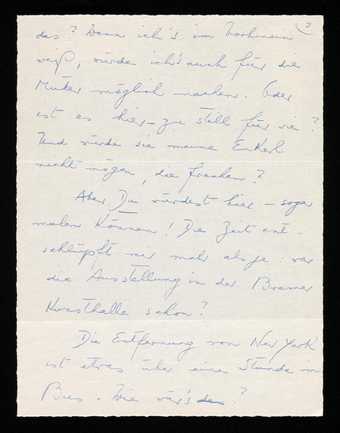 2
das? Wenn ich's im Vorhinein
weiß, würde ich's auch für die
Mutter möglich machen. Oder
ist es hier zu still für sie?
Und würde sie meine Enkerl
nicht mögen, die frechen?
Aber Du würdest hier – sogar
malen können! Die Zeit ent-
schlüpft mir mehr als je: war
die Ausstellung in der Bremer
Kunsthalle schon?
Die Entfernung von New York
ist etwas über eine Stunde im
Bus. Wie wär's denn?